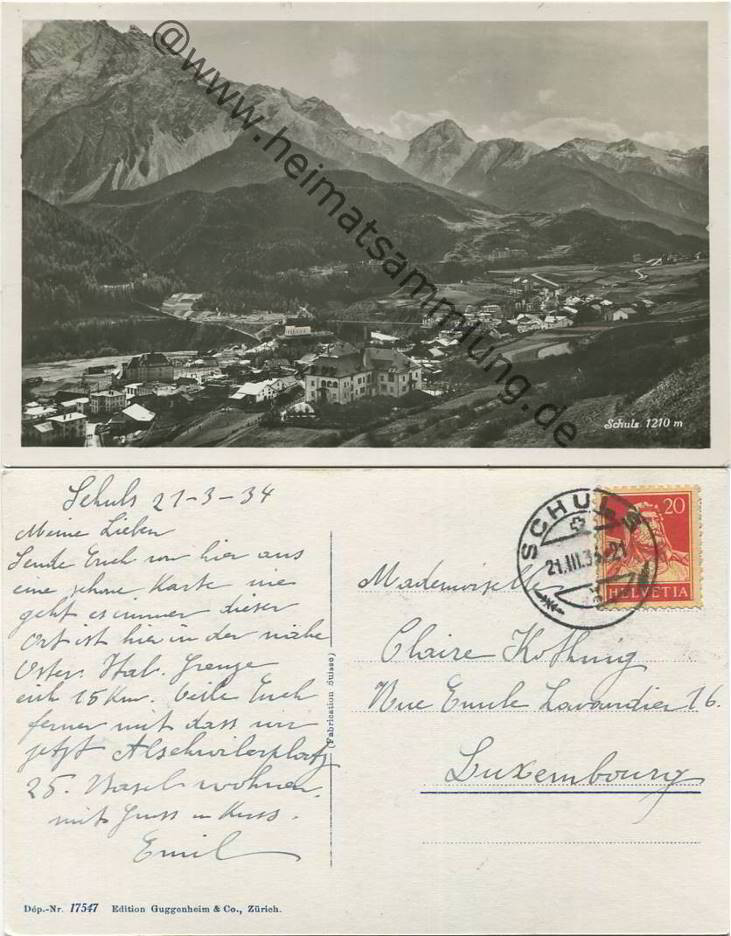 @www.heimatsammlung.de
Schuls 1210 m
Schuls 21-3-34
Meine Lieben
Sende Euch von hier aus
eine schöne Karte wie
geht es immer dieser
Ort ist hier in der nähe
Öster. Ital. Grenze
15 Km. Teile Euch
ferner mit dass wir
jetzt Alschwilerplatz
25. Basel wohnen.
mit Gruss u Kuss.
Emil
Dép.-Nr. 17547 Edition Guggenheim & Co., Zürich.
(Fabrication Suisse)
SCHULS
21.III.34-21
20
HELVETIA
Mademoiselle
Claire
Rue Emile Lavandier 16.
Luxembourg